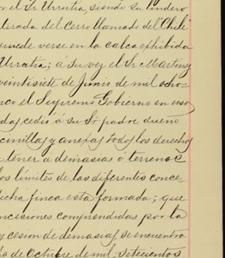 el Sr Urrutia siendo su lindero
tirada del cerro llamado del Chile
puede verse en la calca exhibida
Urrutia; a su vez el Sr Martinez
veintisiete de Junio de mil ocho
co el Supremo Gobierno en uso
des, cedió á su Sr padre dueño
cinillas y anexas todos los derechos
tener a demasias o terrenos
los limites de las diferentes conce
dicha finca esta formada; que
ncesiones comprendidas por la
y cesion de demasias se encuentra
de Octubre de mil setecientos